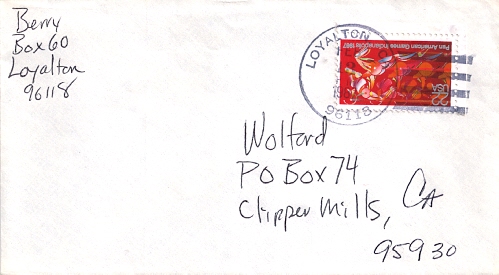 Berry
Box 60
Loyalton
96118
LOYALTON
96118
Pan American Games Indianapolis 1987
USA
22
Wolford
PO Box 74
Clipper Mills, CA
95930